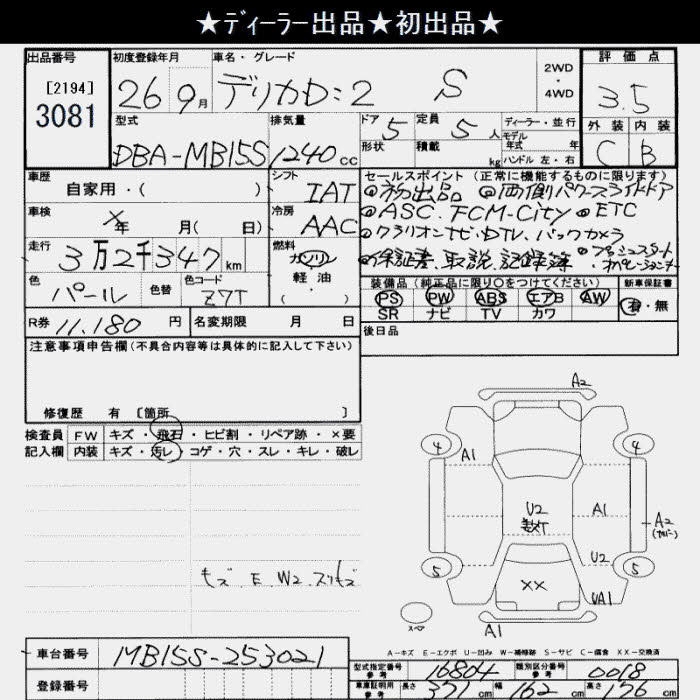 ★ディーラー出品★初出品★
出品番号 初度登録年月 車名・グレード 2WD・4WD 評価点
[2194]
3081
26 9月 デリカD:2 S 3.5
型式 排気量 ドア 5 定員 5人 ディーラー・並行 外装 内装
DBA-MB15S 1240cc 形状 積載 kg モデル年式 年 C B
ハンドル 左・右
車歴 シフト セールスポイント(正常に機能するものに限ります)
自家用・( ) IAT ◎初出品 ◎両側パワースライドドア
車検 冷房 ◎ASC.FCM-City ◎ETC
×年 月( 日) AAC ◎クラリオンナビ・DTV、バックカメラ
走行 燃料 ◎保証書、取説、記録簿 ・プッシュスタート
3万2千347km ガソリン オペレーション
軽・油
色 色替 色コード 装備品(純正品に限り○をつけてください) 新車保証書
パール Z7T PS PW ABS エアB AW 有・無
( ・ ) SR ナビ TV カワ
R券 11,180円 名変期限 月 日 後日品
注意事項申告欄(不具合内容等は具体的に記入して下さい)
修復歴 有 [箇所 ]
検査員 FW キズ・飛石・ヒビ割・リペア跡・×要
記入欄 内装 キズ・汚レ・コゲ・穴・スレ・キレ・破レ
キズ E W2 スリキズ
A2
4 4
A1
U2 A1 A2
U2
5 5
××
UA1
A1
A-キズ E-エクボ U-凹み W-補修跡 S-サビ C-腐食 XX-交換済
車台番号 MB15S-253021
登録番号
型式指定番号 参考 16804 類別区分番号 参考 0018
車庫証明用 参考 長さ 371cm 幅 162cm 高さ 156cm